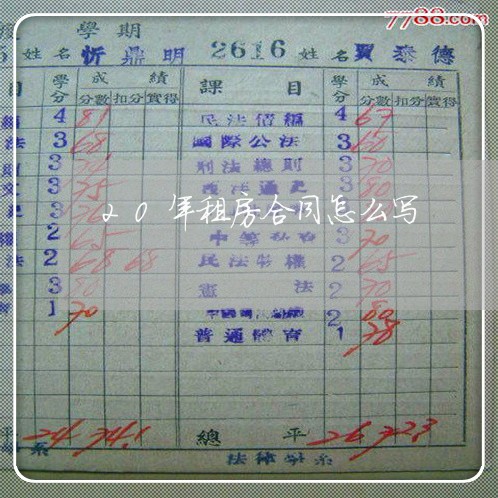 7788.com
學期
姓名 忻鼎明 2616 姓名 賈泰德
目 學分 成績 課目 學分 成績
分數 扣分 實得 分數 扣分 實得
4 81 民法債編 4 67
法 3 68 國際公法 3 60
3 刑法總則 3 70
3 75 3 80
20年租房合同怎么写
2 65 3 70
法 2 68 68 民法物權 2 65
3 80 憲法 2 70
1 70 2 80
普通體育 1 78
平 24 74.1 總平 26 72.3
系 法律學系